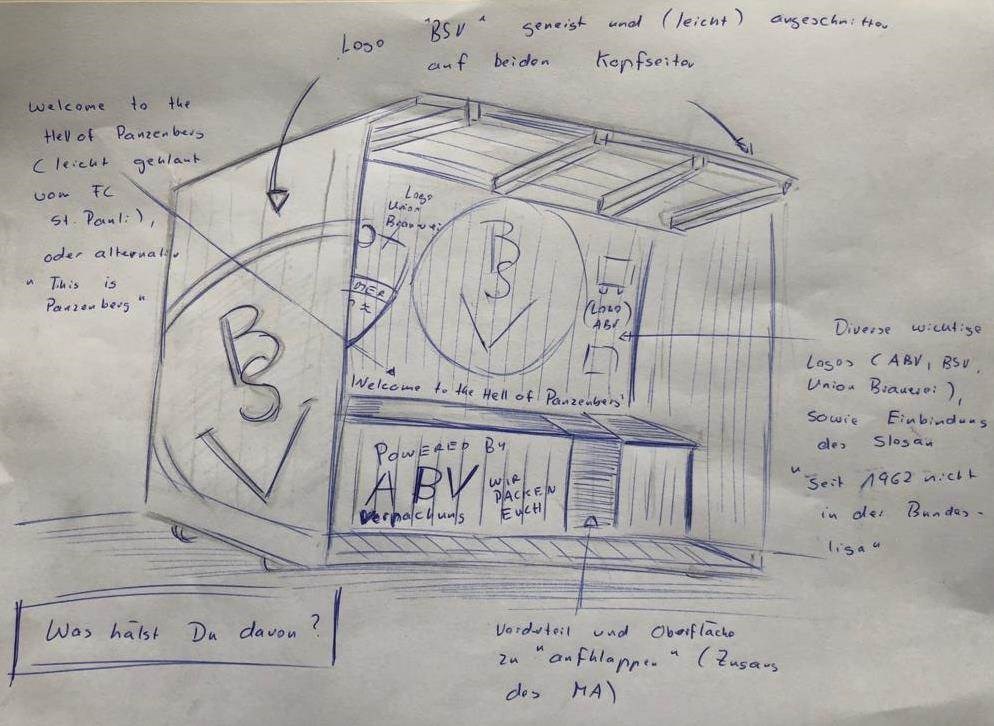 Logo "BSV" geneigt und (leicht) angeschnitten
auf beiden Kopfseiten
Welcome to the
Hell of Panzenberg
(leicht geklaut
vom FC
St. Pauli),
oder alternativ
"This is
Panzenberg"
Logo
Union
Brauerei
BSV
BSV
(Logo)
ABV
Welcome to the Hell of Panzenberg
POWERED BY
ABV
Verpackung
WIR
PACKEN
EUCH
Diverse wichtige
Logos (ABV, BSV,
Union Brauerei),
sowie Einbindung
des Slogan
"Seit 1962 nicht
in der Bundes-
liga"
Was hälst Du davon?
Vorderteil und Oberfläche
zu "aufklappen" (Zugang
des MA)